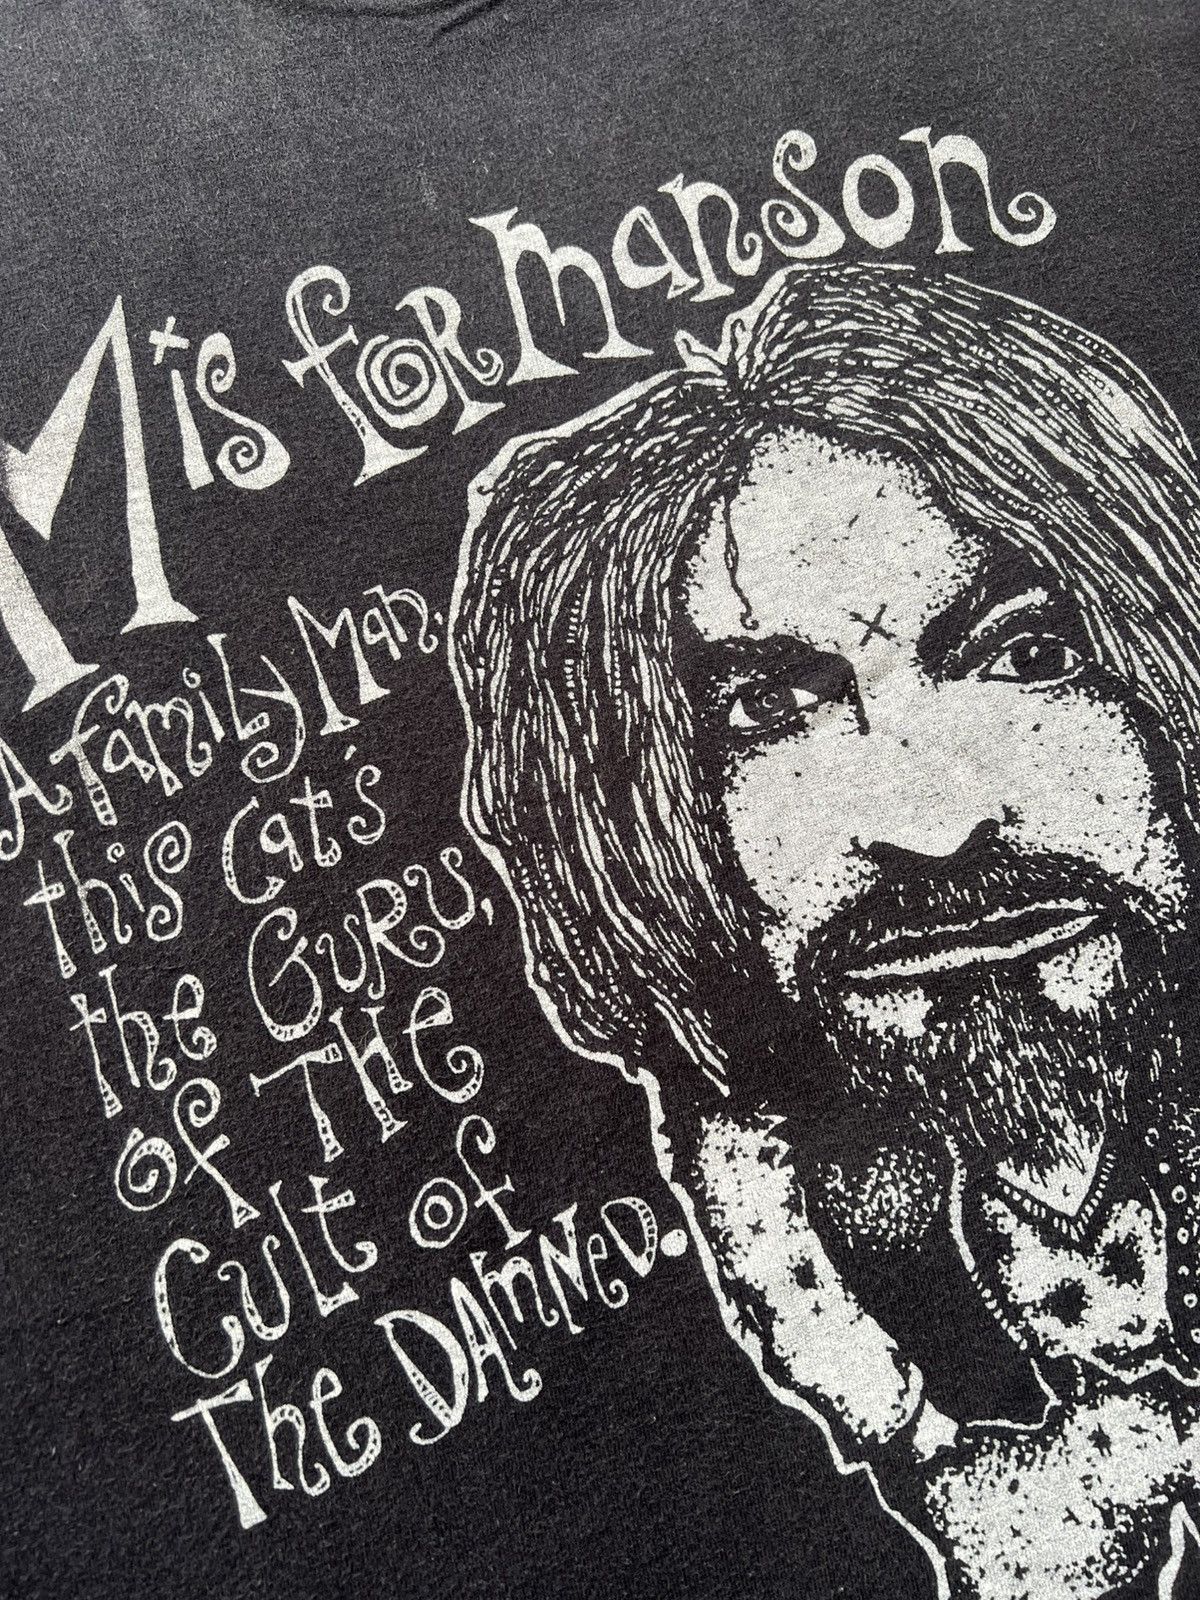 M is for manson
A family Man.
this Cat's
the GURU,
of THe
Cult of
The DAmNeD.